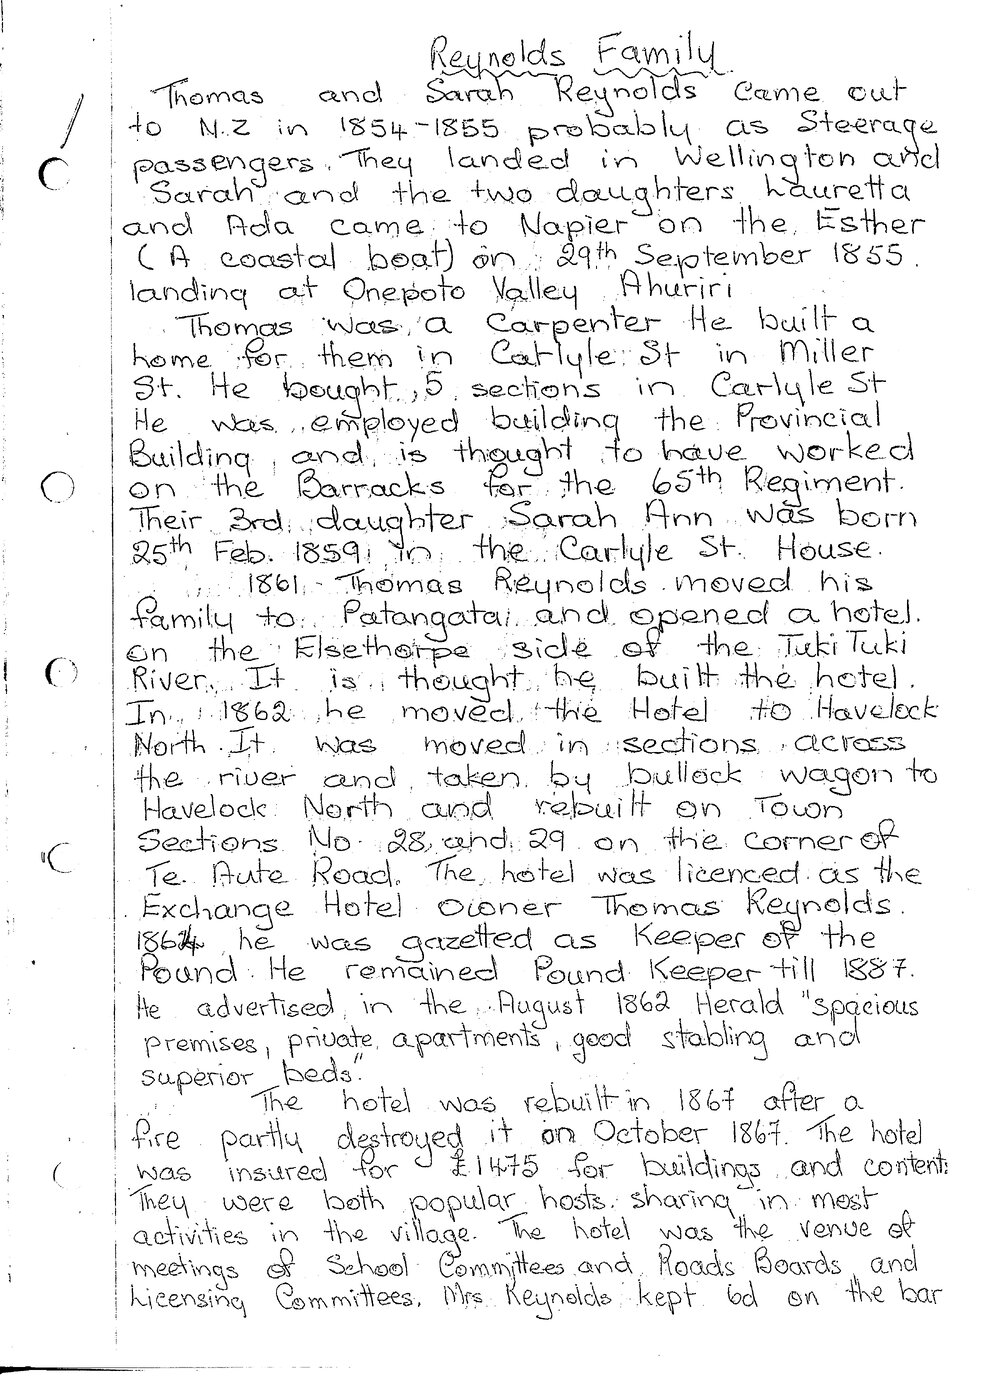 Reynolds Family
Thomas and Sarah Reynolds came out
to N.Z in 1854-1855 probably as Steerage
passengers. They landed in Wellington and
Sarah and the two daughters Lauretta
and Ada came to Napier on the Esther
(A coastal boat) on 29th September 1855.
landing at Onepoto Valley Ahuriri
Thomas was a Carpenter He built a
home for them in Carlyle St in Miller
St. He bought 5 sections in Carlyle St
He was employed building the Provincial
Building, and is thought to have worked
on the Barracks for the 65th Regiment.
Their 3rd daughter Sarah Ann was born
25th Feb. 1859 in the Carlyle St. House.
1861 - Thomas Reynolds moved his
family to Patangatai and opened a hotel.
on the Elsethorpe side of the Tuki Tuki
River. It is thought he built the hotel.
In 1862 he moved the Hotel to Havelock
North. It was moved in sections across
the river and taken by bullock wagon to
Havelock North and rebuilt on Town
Sections No. 28 and 29 on the corner of
Te Aute Road. The hotel was licenced as the
Exchange Hotel owner Thomas Reynolds.
1864 he was gazetted as Keeper of the
Pound. He remained Pound Keeper till 1887.
He advertised in the August 1862 Herald "spacious
premises, private apartments, good stabling and
superior beds".
The hotel was rebuilt in 1867 after a
fire partly destroyed it on October 1867. The hotel
was insured for £1475 for buildings and content
They were both popular hosts sharing in most
activities in the village. The hotel was the venue of
meetings of School Committees and Roads Boards and
Licensing Committees. Mrs Reynolds kept 6d on the bar